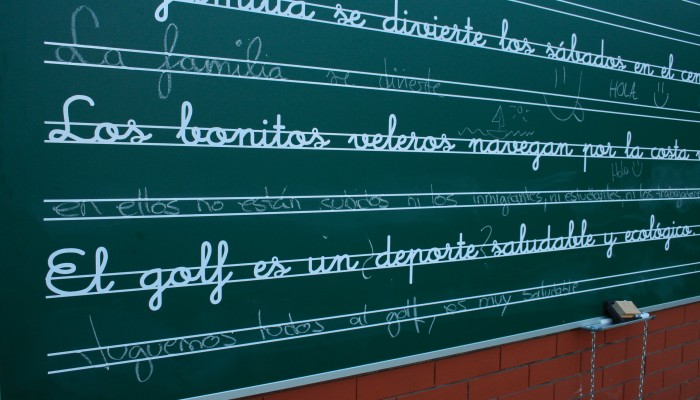 familia se divierte los sábados en el cen
La familia se divierte
HOLA
Los bonitos veleros navegan por la costa
Hola
en ellos no están subidos ni los inmigrantes, ni estudiantes, ni los trabajadores
El golf es un ¿deporte? saludable y ecológico.
Juguemos todos al golf, es muy saludable